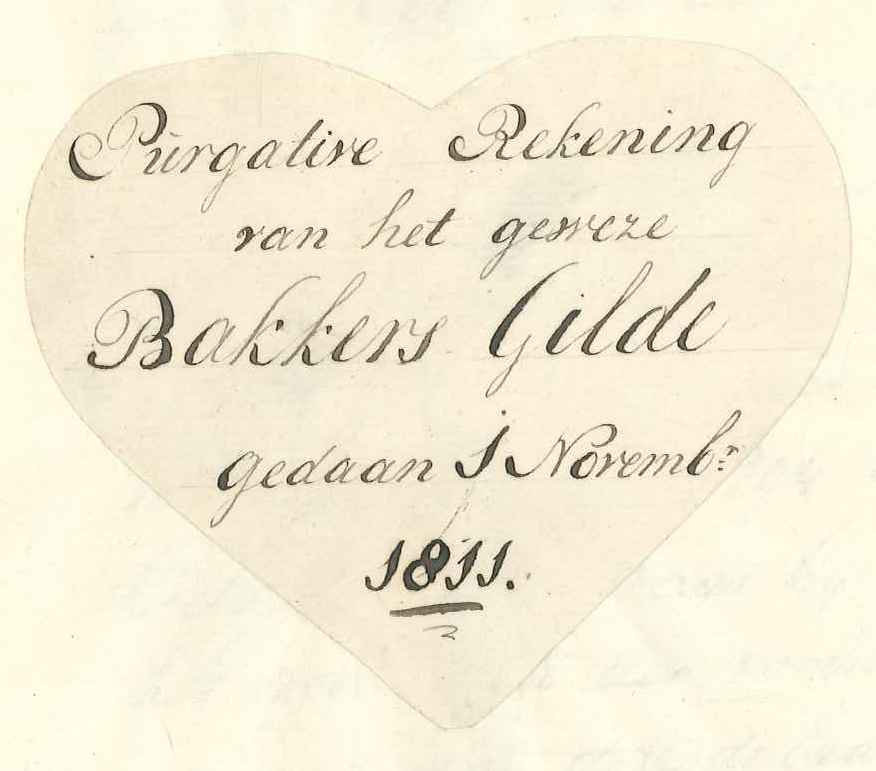 Pùrgative Rekening
van het geweze
Bakkers Gilde
gedaan 1 Novembr
1811.